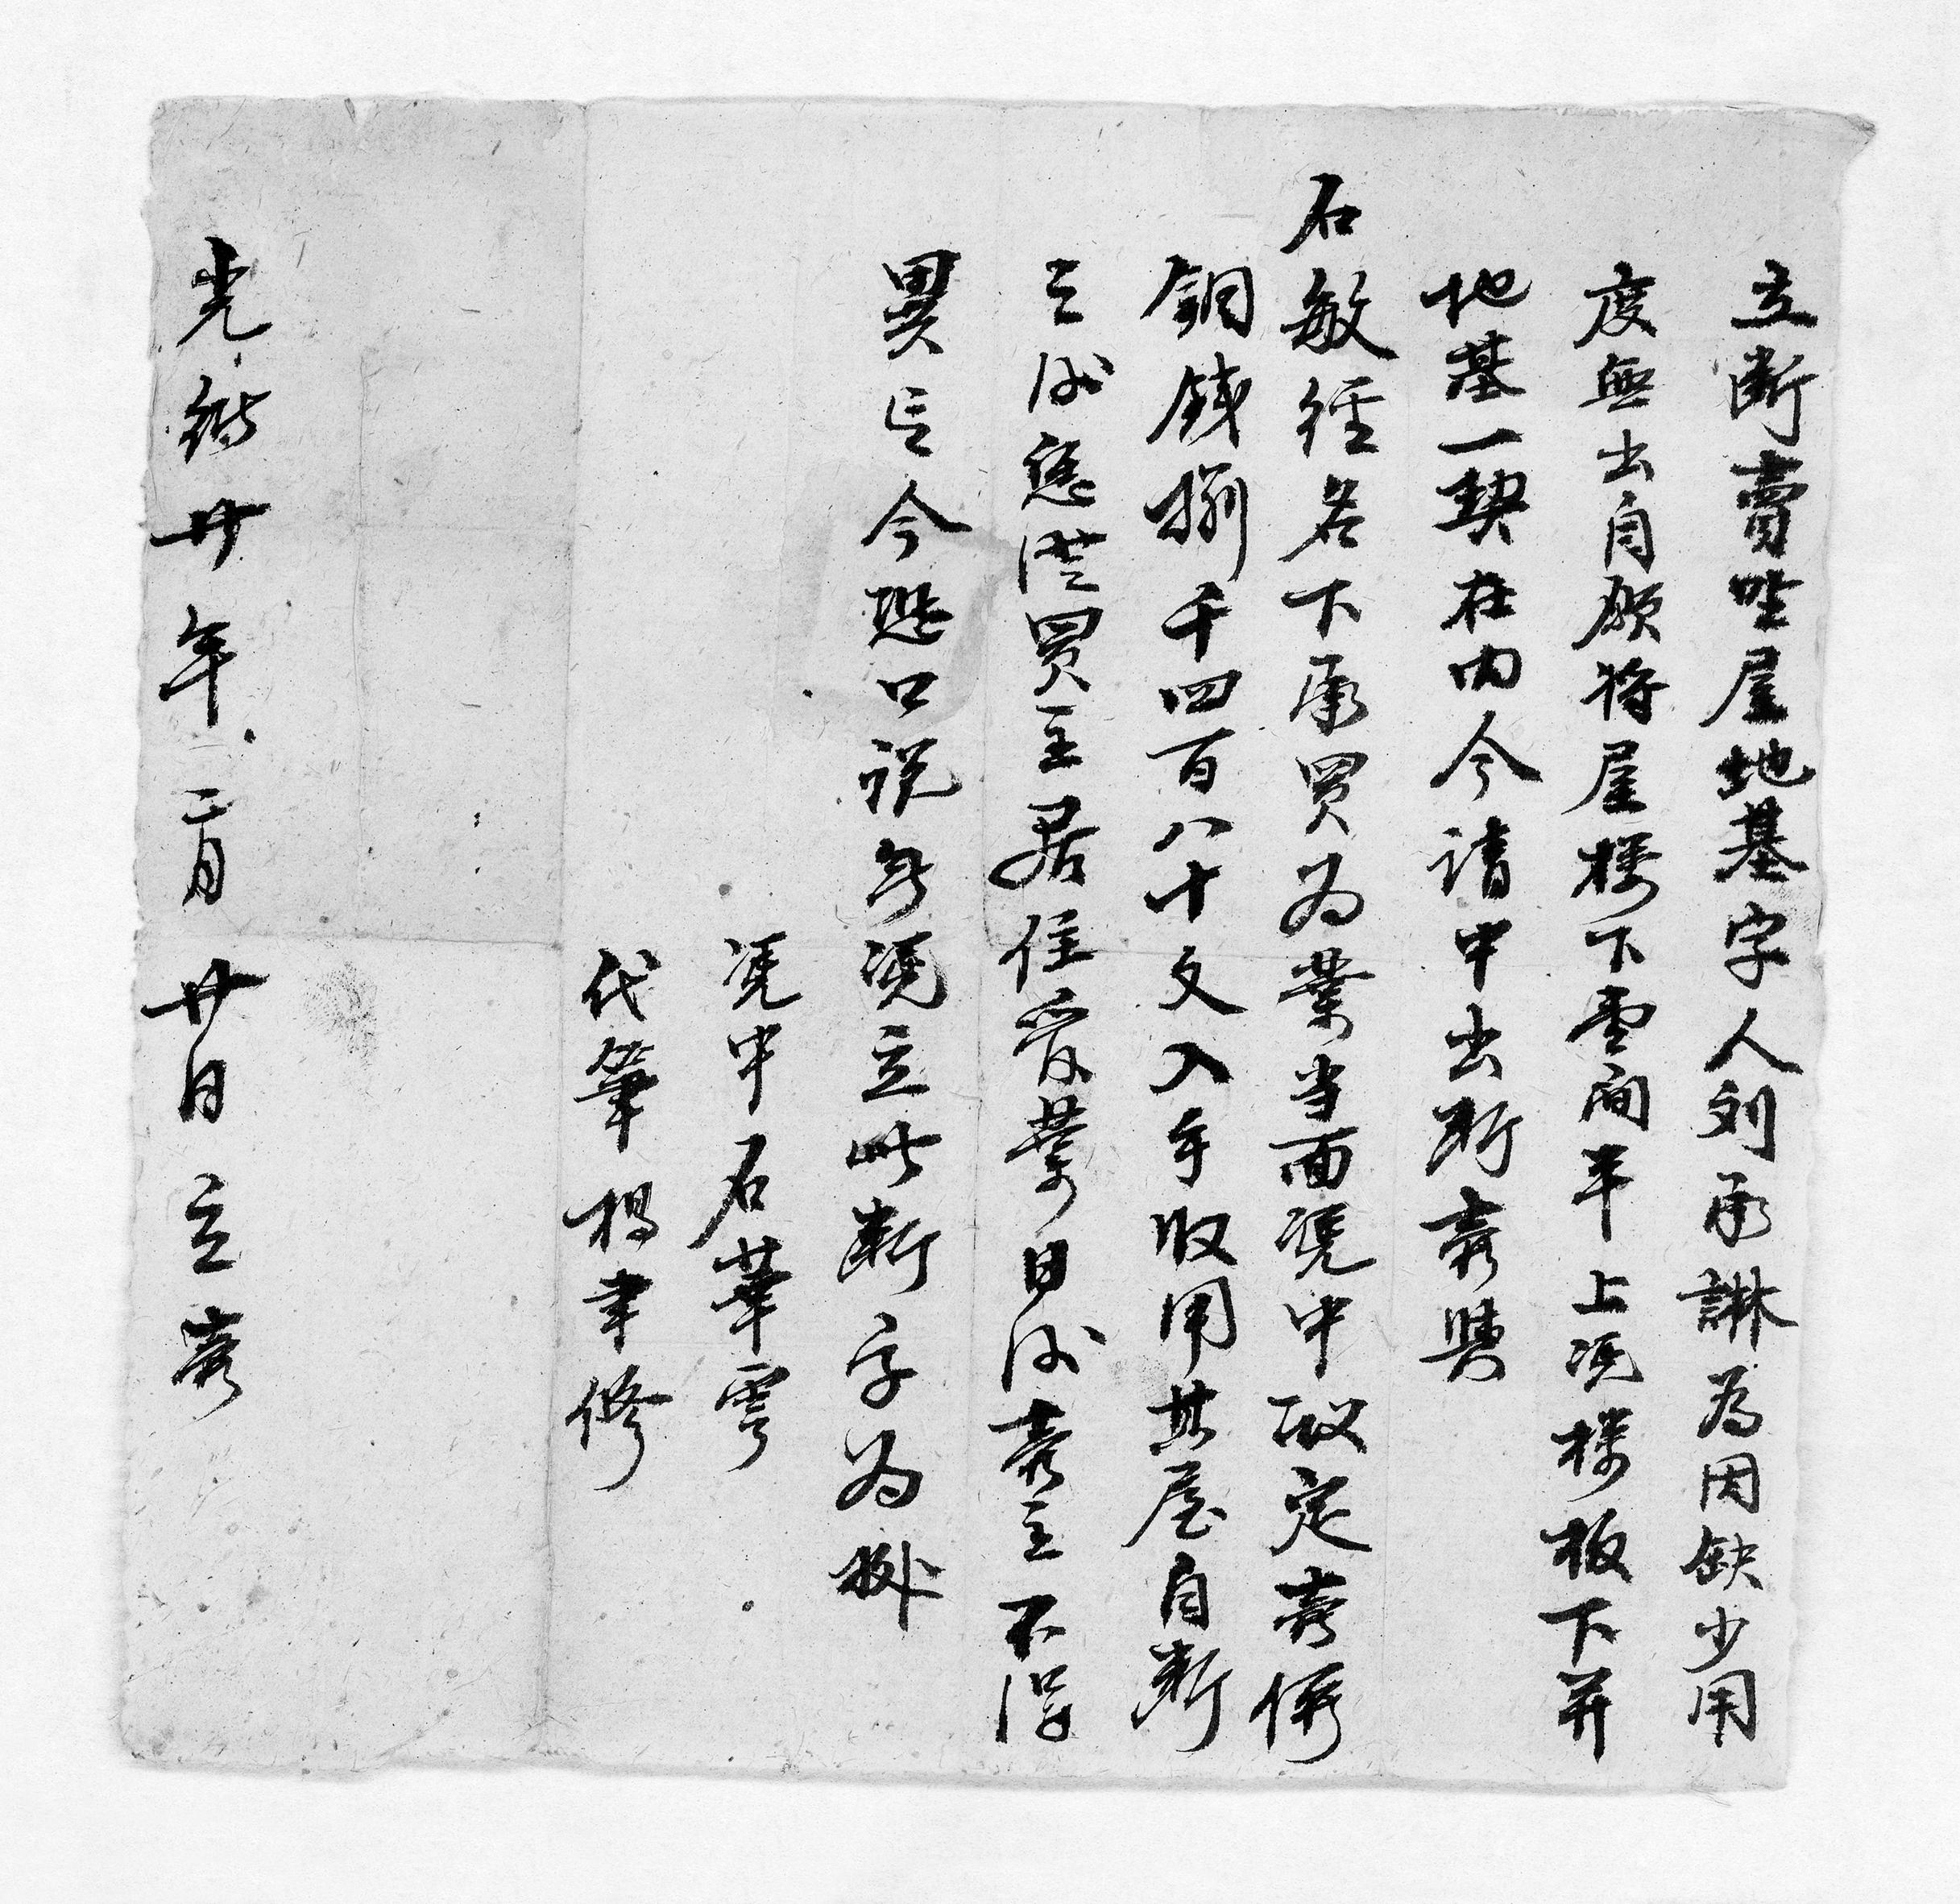 立断賣坐屋地基字人刘承諃為因缺少用
度無出自願将屋楼下壹间半上凭楼板下并
地基一契在内今請中出断賣與
石敏径名下承買为業当面凭中取定賣價
銅錢捌千四百八十文入手收用其屋自断
之後恁從買主居住管業日後賣主不得
異言今恐口説無凭立此断字为㨿
凭中石華雲
代筆楊聿修
光緒廿年二月廿日立賣